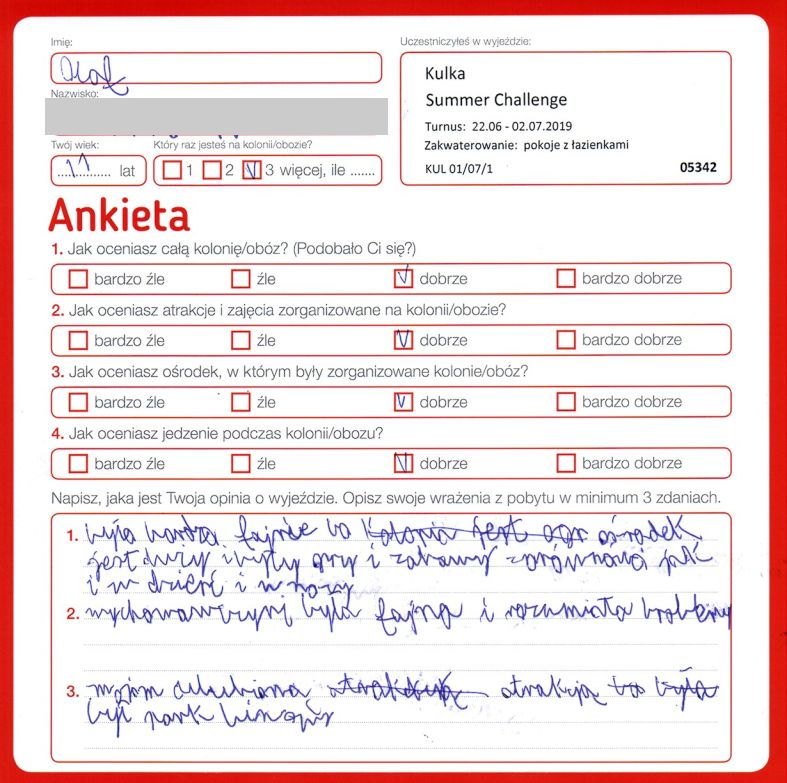 Imię:
Uczestniczyłeś w wyjeździe:
Kulka
Summer Challenge
Nazwisko:
Turnus: 22.06 - 02.07.2019
Zakwaterowanie: pokoje z łazienkami
KUL 01/07/1 05342
Twój wiek: Który raz jesteś na kolonii/obozie?
11 lat 1 2 3 więcej, ile .......
Ankieta
1. Jak oceniasz całą kolonię/obóz? (Podobało Ci się?)
bardzo źle źle dobrze bardzo dobrze
2. Jak oceniasz atrakcje i zajęcia zorganizowane na kolonii/obozie?
bardzo źle źle dobrze bardzo dobrze
3. Jak oceniasz ośrodek, w którym były zorganizowane kolonie/obóz?
bardzo źle źle dobrze bardzo dobrze
4. Jak oceniasz jedzenie podczas kolonii/obozu?
bardzo źle źle dobrze bardzo dobrze
Napisz, jaka jest Twoja opinia o wyjeździe. Opisz swoje wrażenia z pobytu w minimum 3 zdaniach.
1. było fajnie bo kolonia jest ośrodek
jest duży i były gry i zabawy jak
i w dzień i w nocy
2. była fajna i rozumiała
3. mojom atrakcją to była
był park linowy